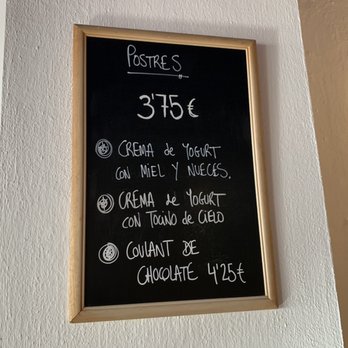 POSTRES
3'75€
CREMA de YOGURT
CON MIEL Y NUECES.
CREMA de YOGURT
CON TOCINO de CIELO
COULANT DE
CHOCOLATE 4'25€